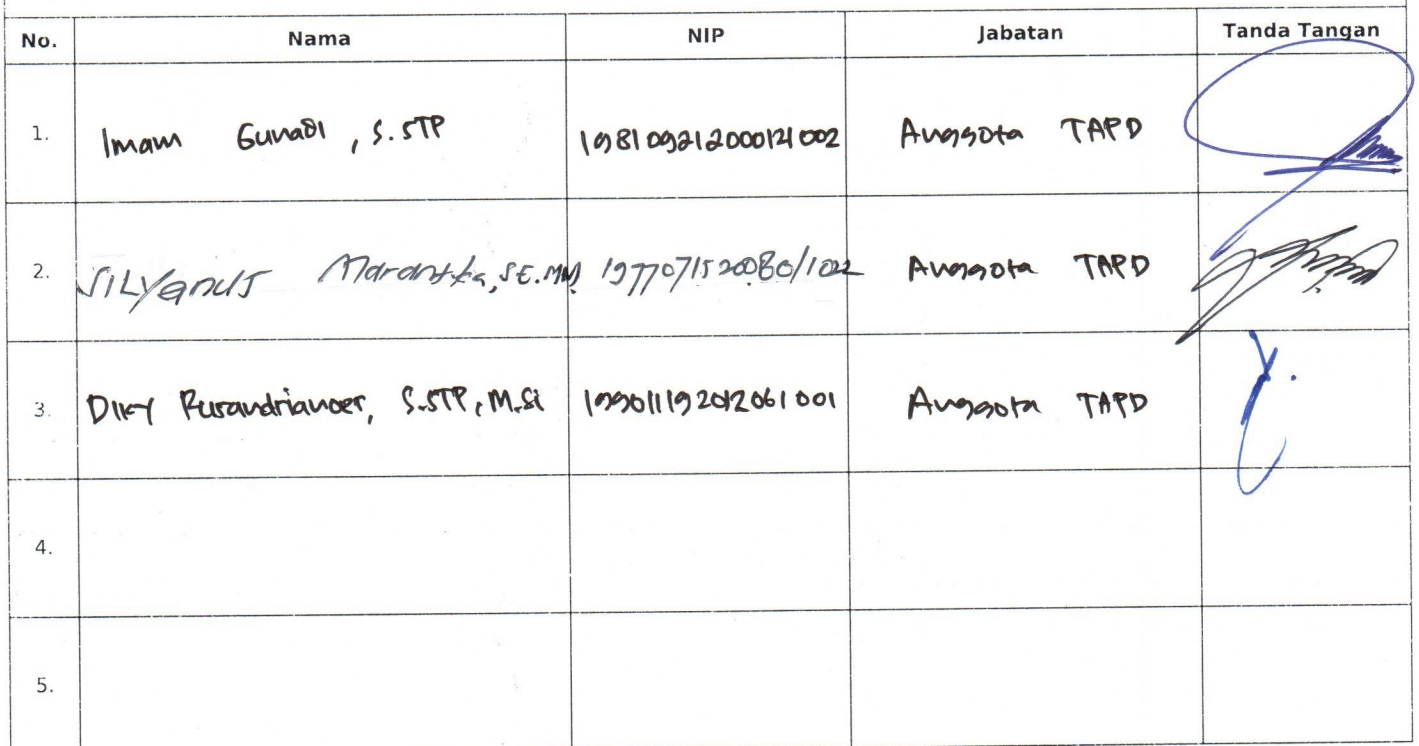 No. Nama NIP Jabatan Tanda Tangan
1. Imam Gunadi, S.STP 198109212000121002 Anggota TAPD
2. Silyanus Marantika, SE.MM 197707152008011022 Anggota TAPD
3. Diky Rusandrianser, S.STP, M.Si 199011192012061001 Anggota TAPD
4.
5.